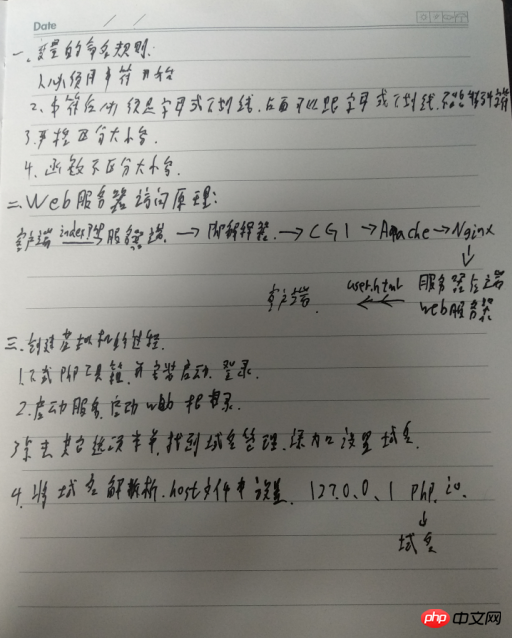 Date / /
一、变量的命名规则:
1、必须用$符开始
2、$符后必须是字母或下划线,后面可以跟字母或下划线,不能
3、严格区分大小写.
4、函数不区分大小写.
二、Web服务器访问原理:
客户端 index.php 服务器端 → 解释器 → CGI → Apache → Nginx
↓
客户端 user.html 服务器后端
web服务器
三、创建虚拟机的过程.
1、下载PHP工具箱,并安装启动,登录.
2、启动服务,启动web根目录.
3、点击其它选项菜单,找到域名管理,设置域名.
4、将域名解析,host文件中设置. 127.0.0.1 php.io.
↓
域名
php 中文网